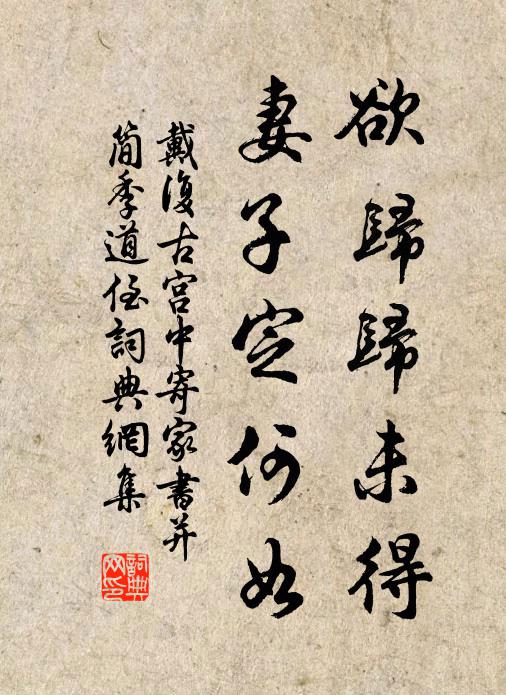 欲歸歸未得
妻子定何如
戴復古宫中寄家書并
簡季道侄詞典網集
詞典网印